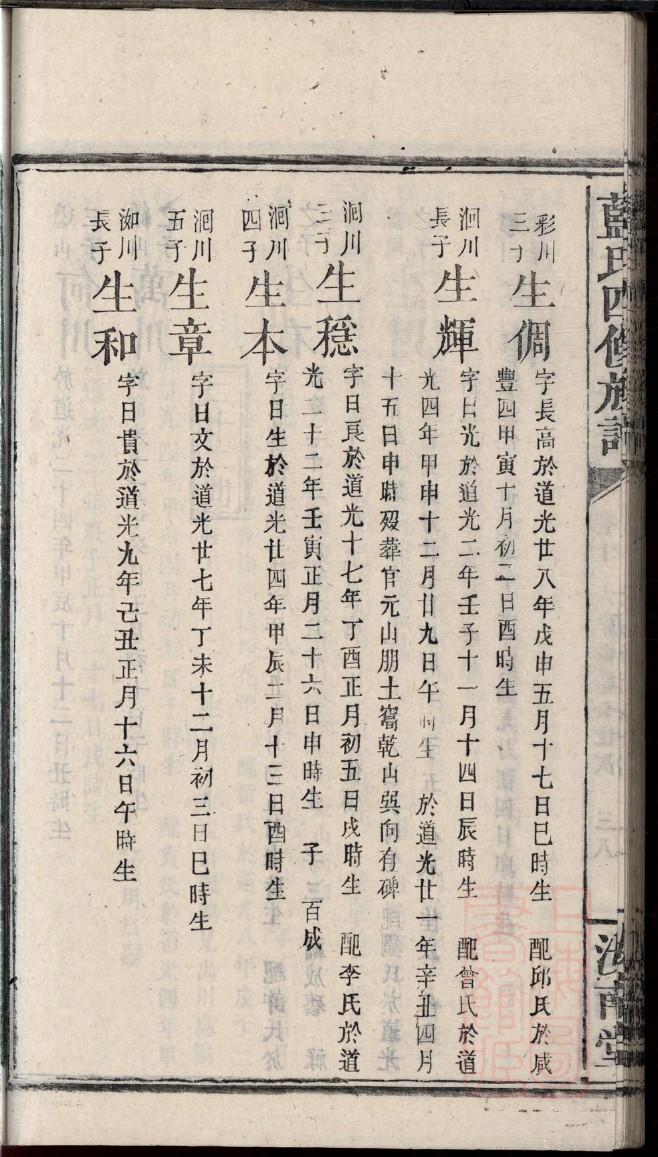 藍氏四修族譜
汝南堂
彩川三子
生倜
字長高於道光廿八年戊申五月十七日巳時生 配邱氏於咸
豐四甲寅十月初二日酉時生
洄川長子
生輝
字日光於道光二年壬子十一月十四日辰時生 配曾氏於道
光四年甲申十二月廿九日午時生 於道光廿一年辛丑四月
十五日申時歿葬官元山朋土窩乾山巽向有碑
洄川三子
生穩
字日良於道光十七年丁酉正月初五日戌時生 配李氏於道
光二十二年壬寅正月二十六日申時生 子 百成
洄川四子
生本
字日生於道光廿四年甲辰二月十三日酉時生
洄川五子
生章
字日文於道光廿七年丁未十二月初三日巳時生
泖川長子
生和
字日貴於道光九年己丑正月十六日午時生